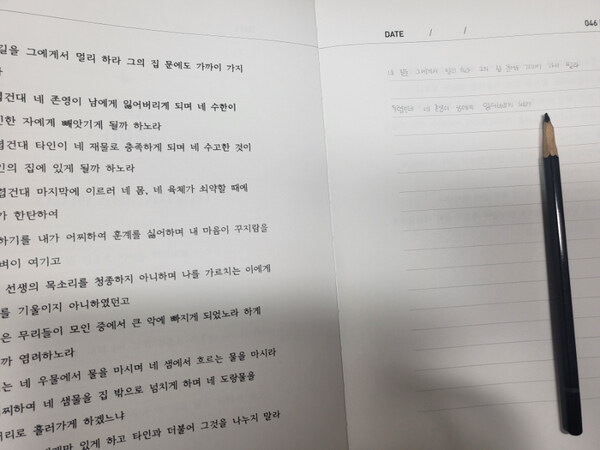 길을 그에게서 멀리 하라 그의 집 문에도 가까이 가지
두렵건대 네 존영이 남에게 잃어버리게 되며 네 수한이
잔인한 자에게 빼앗기게 될까 하노라
두렵건대 타인이 네 재물로 충족하게 되며 네 수고한 것이
외인의 집에 있게 될까 하노라
두렵건대 마지막에 이르러 네 몸, 네 육체가 쇠약할 때에
네가 한탄하여
말하기를 내가 어찌하여 훈계를 싫어하며 내 마음이 꾸지람을
가벼이 여기고
선생의 목소리를 청종하지 아니하며 나를 가르치는 이에게
귀를 기울이지 아니하였던고
많은 무리들이 모인 중에서 큰 악에 빠지게 되었노라 하게
될까 염려하노라
너는 네 우물에서 물을 마시며 네 샘에서 흐르는 물을 마시라
어찌하여 네 샘물을 집 밖으로 넘치게 하며 네 도랑물을
거리로 흘러가게 하겠느냐
있게 하고 타인과 더불어 그것을 나누지 말라
DATE / /
046
네 길을 그에게서 멀리 하라 그의 집 문에도 가까이 가지 말라
두렵건대 네 존영이 남에게 잃어버리게 되며